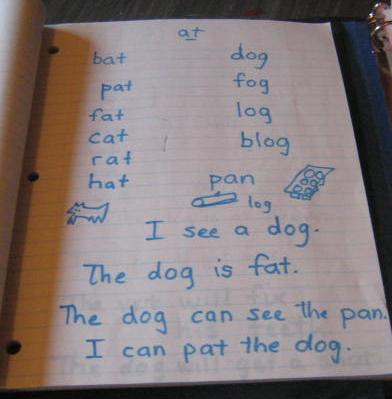 at
bat dog
pat fog
fat log
cat blog
rat
hat pan
log
I see a dog.
The dog is fat.
The dog can see the pan.
I can pat the dog.